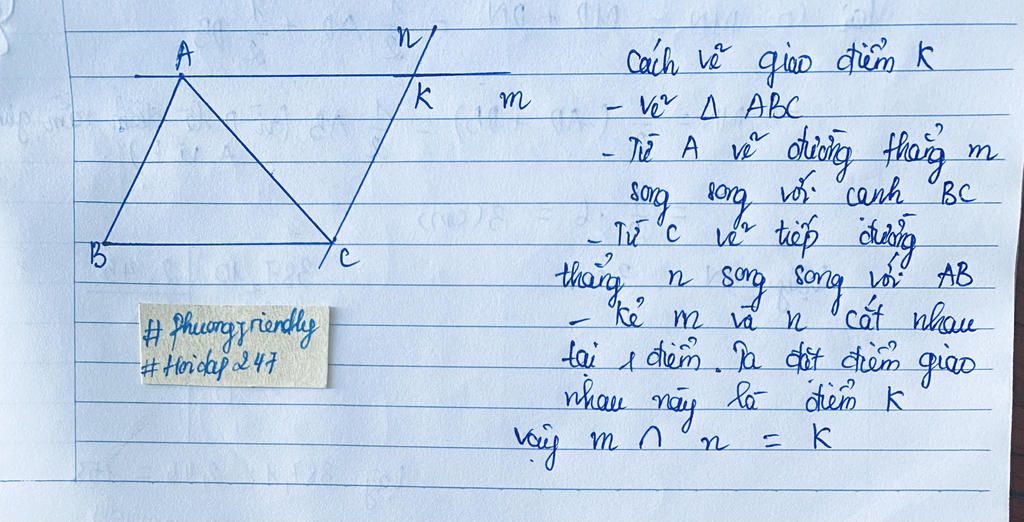 n
A
K
m
B
C
Cách vẽ giao điểm K
- Vẽ Δ ABC
- Từ A vẽ đường thẳng m
song song với cạnh BC
- Từ C vẽ tiếp đường
thẳng n song song với AB
- Kẻ m và n cắt nhau
tại 1 điểm. Ta đặt điểm giao
nhau này là điểm K
Vậy m ∩ n = K
# phuongfriendly
# Hoidap247